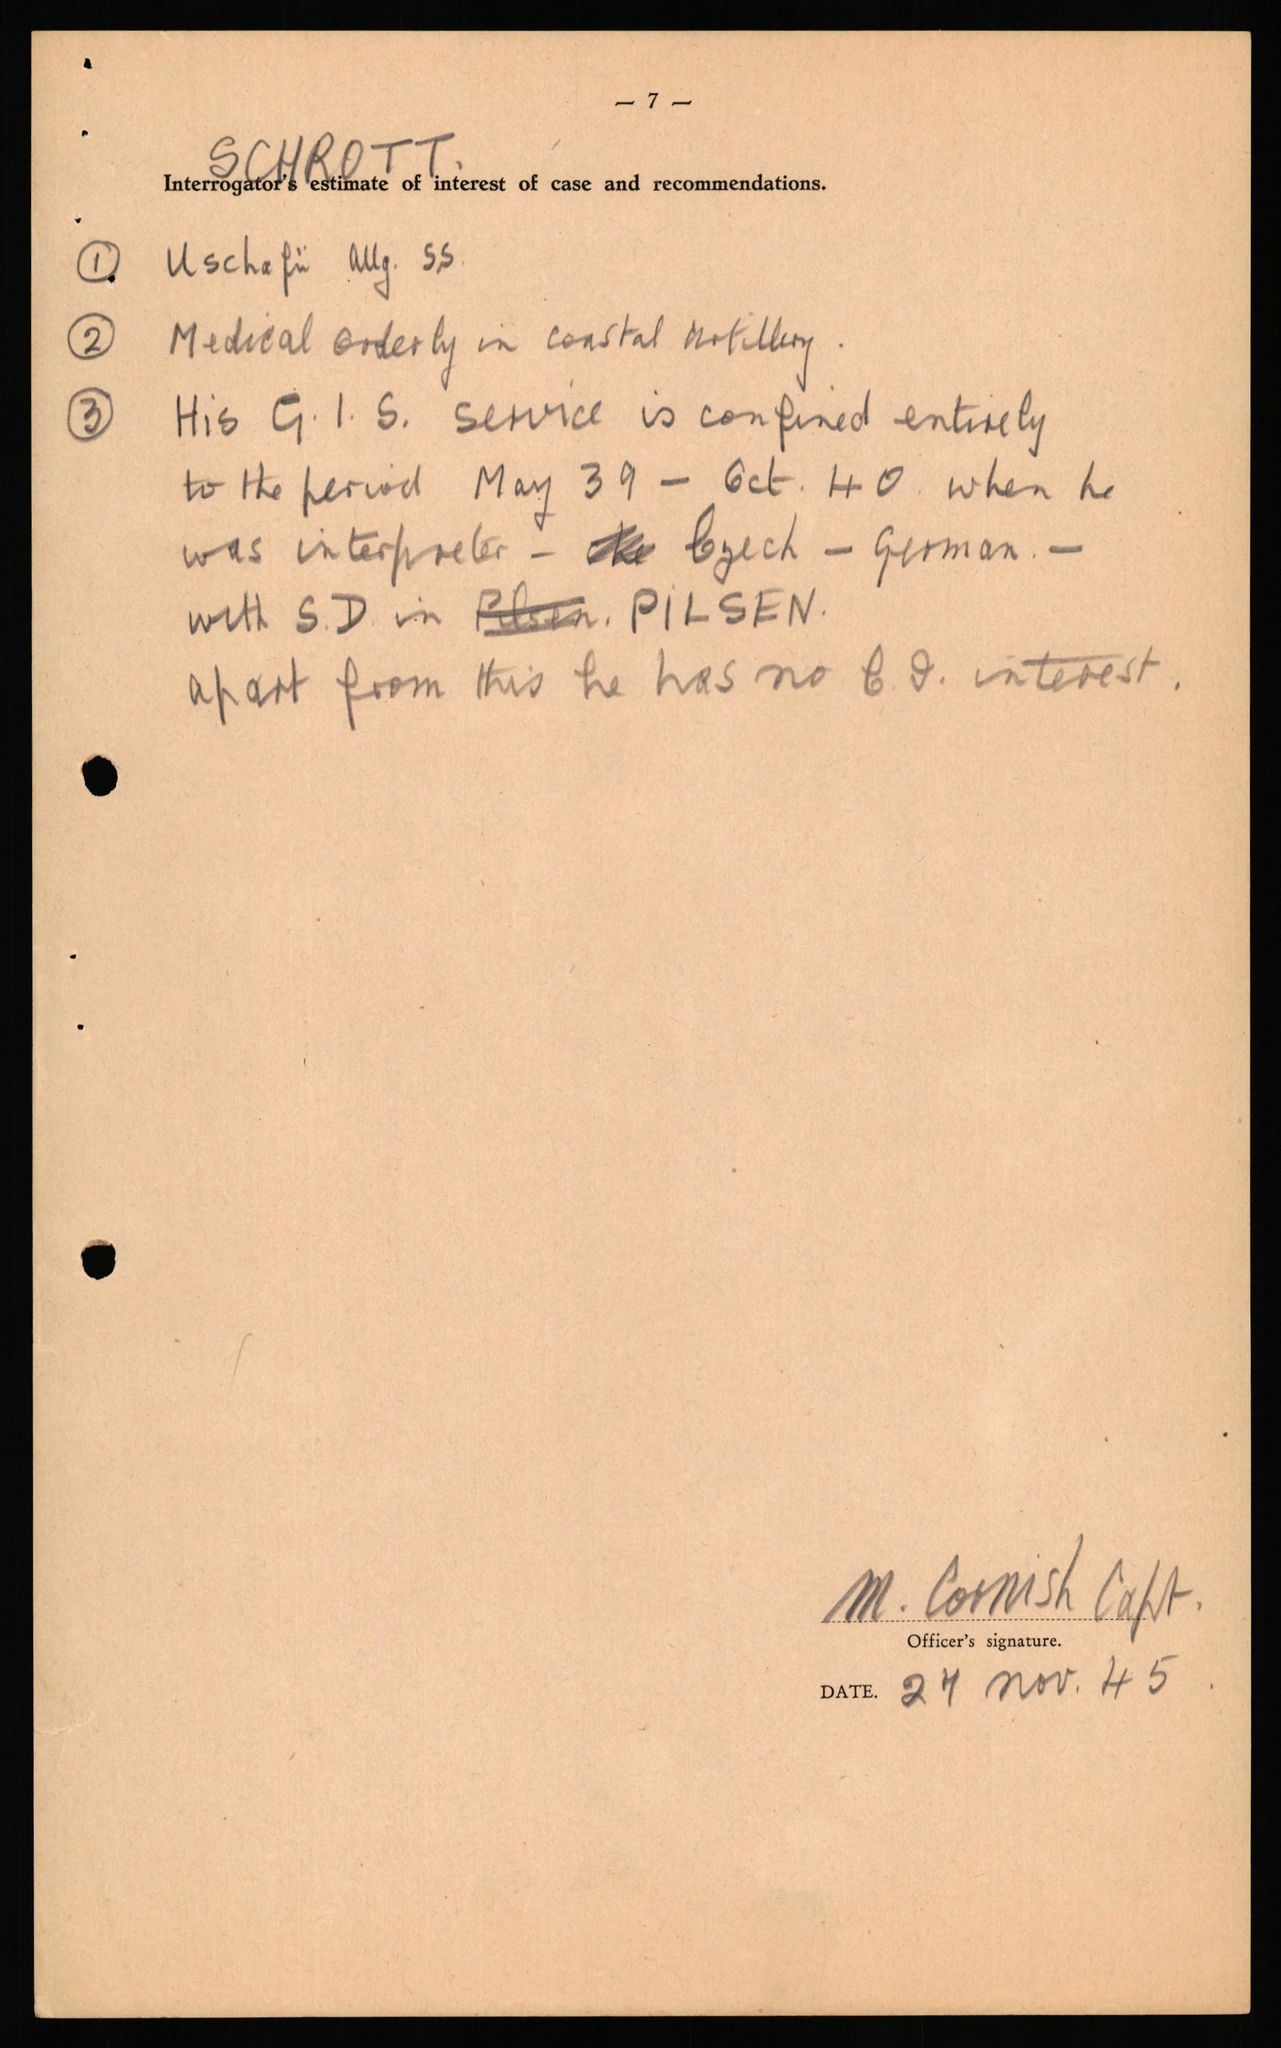 — 7 —
SCHROTT.
Interrogator's estimate of interest of case and recommendations.
① Uschafü Allg. SS.
② Medical orderly in coastal Artillery.
③ His G.I.S. service is confined entirely
to the period May 39 – Oct. 40. when he
was interpreter – Czech – German. –
with S.D. in Pilsen. PILSEN.
apart from this he has no C.I. interest.
M. Cornish Capt.
Officer's signature.
DATE. 27 Nov. 45.